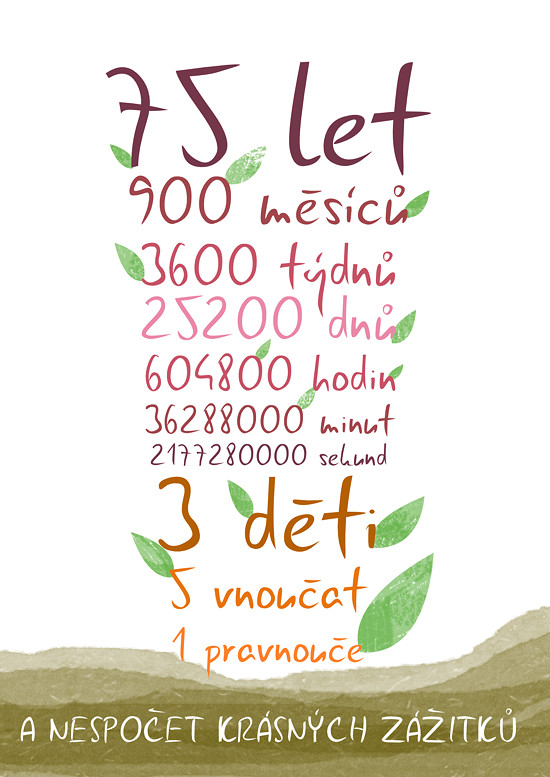 75 let
900 měsíců
3600 týdnů
25200 dnů
604800 hodin
36288000 minut
2177280000 sekund
3 děti
5 vnoučat
1 pravnouče
A NESPOČET KRÁSNÝCH ZÁŽITKŮ